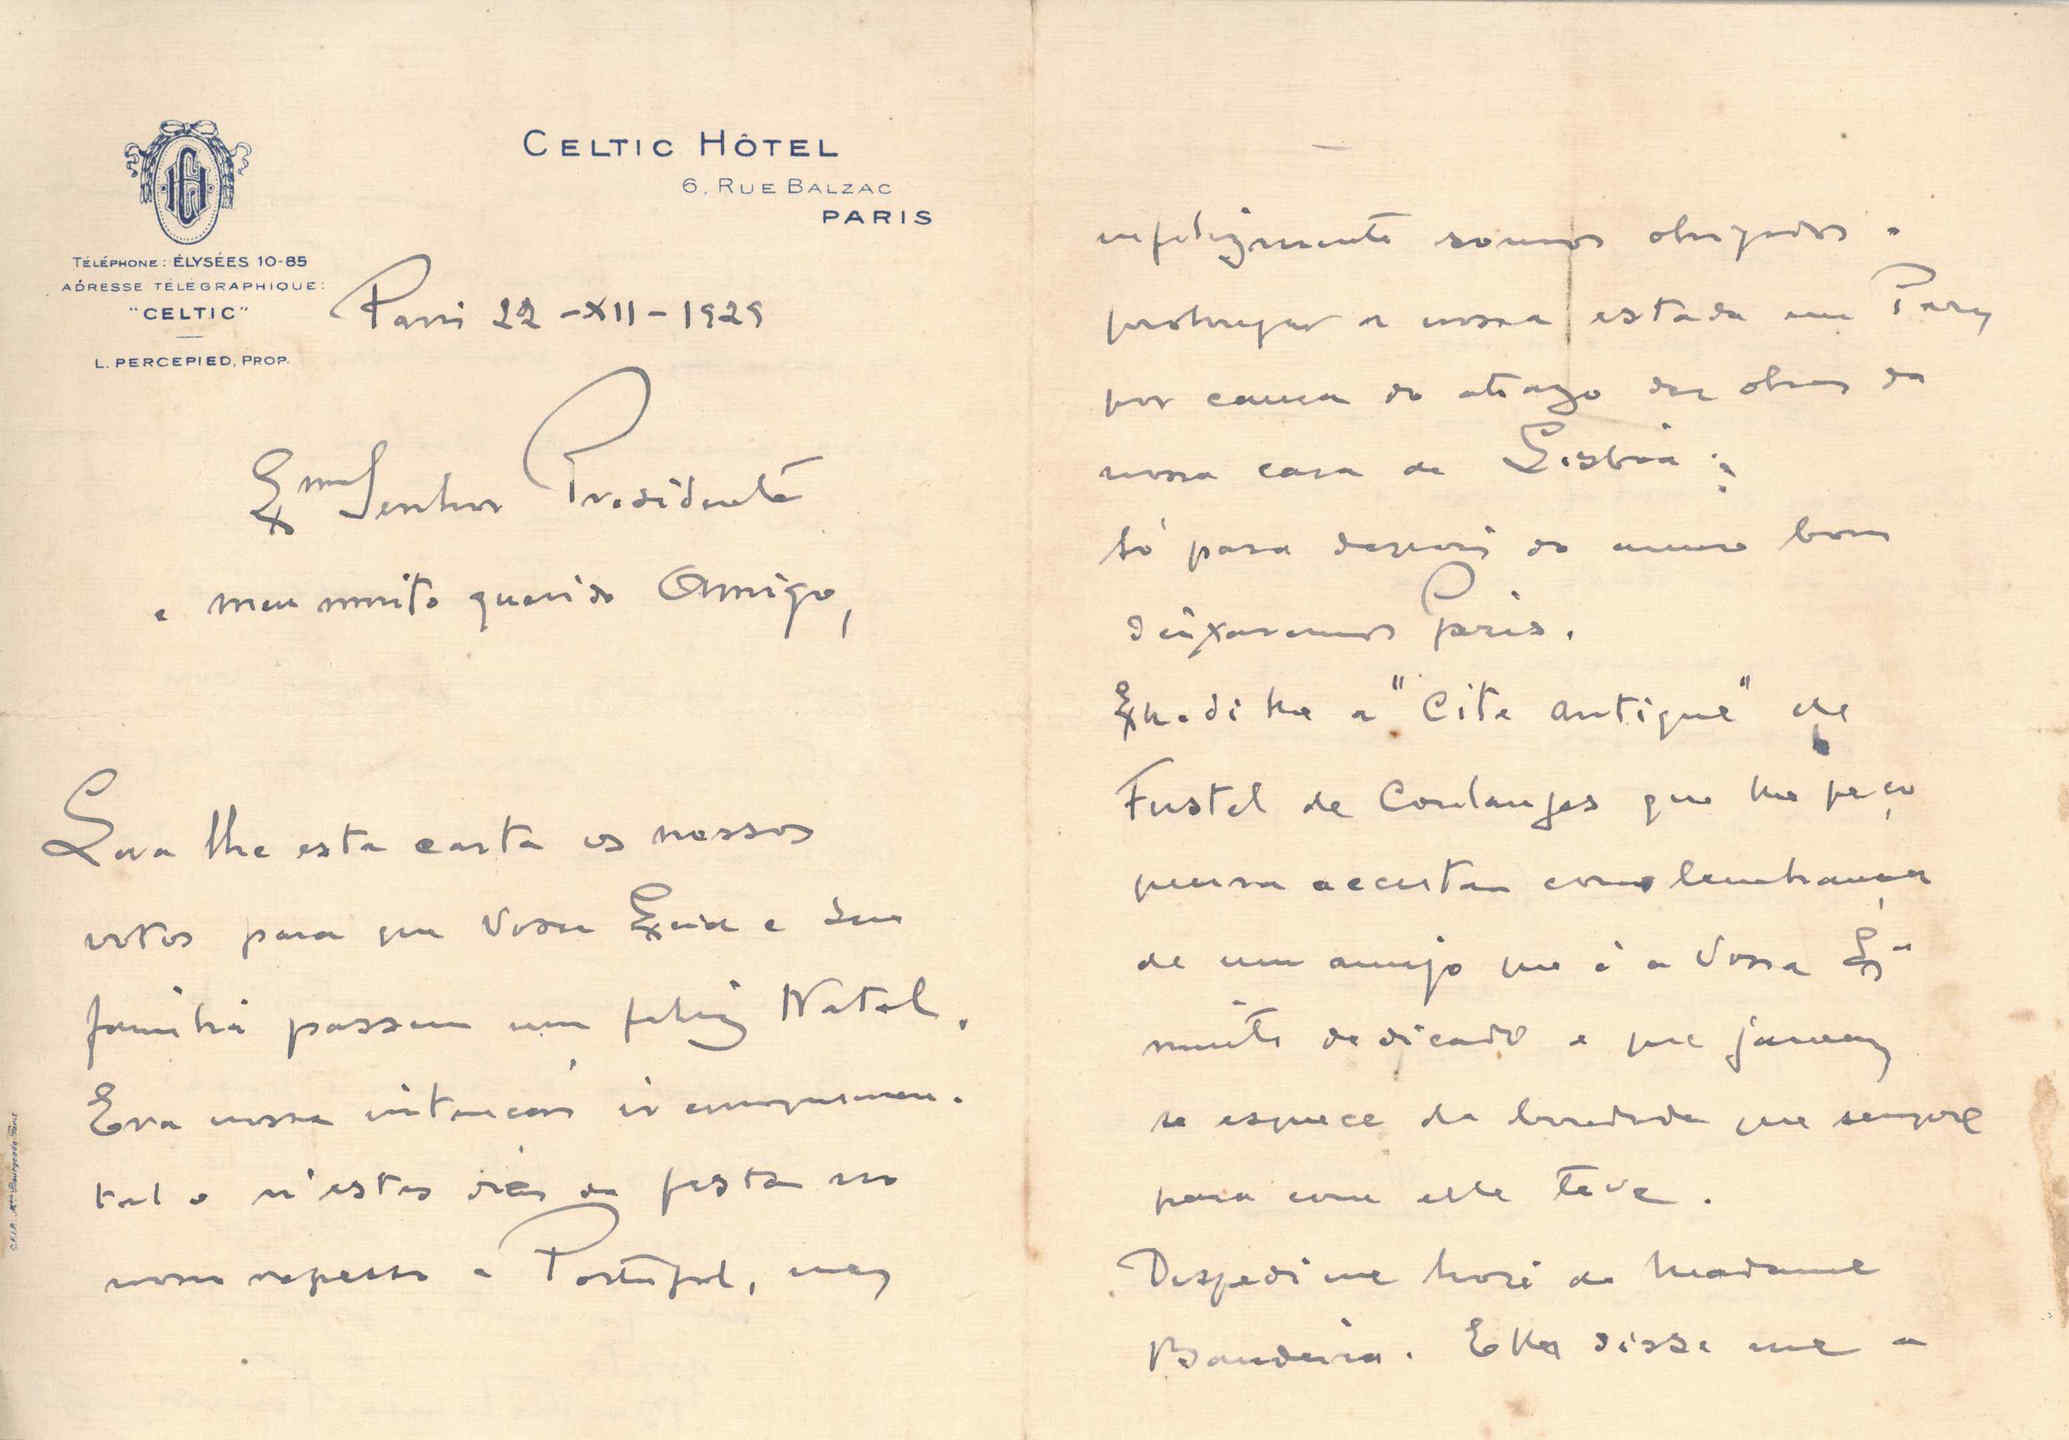 CELTIC HÔTEL
6, RUE BALZAC
PARIS
TÉLÉPHONE: ÉLYSÉES 10-85
ADRESSE TÉLÉGRAPHIQUE:
"CELTIC"
L. PERCEPIED, PROP.
Paris 22-XII-1929
Exmo Senhor Presidente
e meu muito querido Amigo,
Leva lhe esta carta os nossos
votos para que Vossa Excia e sua
familia passem um feliz Natal.
Era nossa intenção ir cumprimen-
tal o n'estes dias de festa no
nosso regresso a Portugal, mas
infelizmente somos obrigados a
prolongar a nossa estada em Paris
por causa do atrazo das obras da
nossa casa de Lisboa;
só para depois do anno bom
deixaremos Paris.
Expedi lhe a "Cite Antique" de
Fustel de Coulanges que lhe peço
queira acceitar como lembrança
de um amigo que é a Vossa Exa
muito dedicado e que jamais
se esquece da bondade que sempre
para com elle teve.
Despedi me hoje de Madame
Bandeira. Ella disse me a